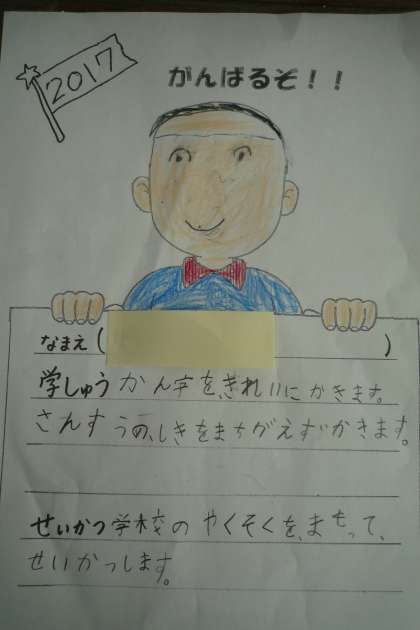 2017
がんばるぞ！！
なまえ（　　　）
学しゅう かん字を、きれいにかきます。
さんすうの、しきをまちがえずかきます。
せいかつ 学校の やくそくを、まもって、
せいかつします。